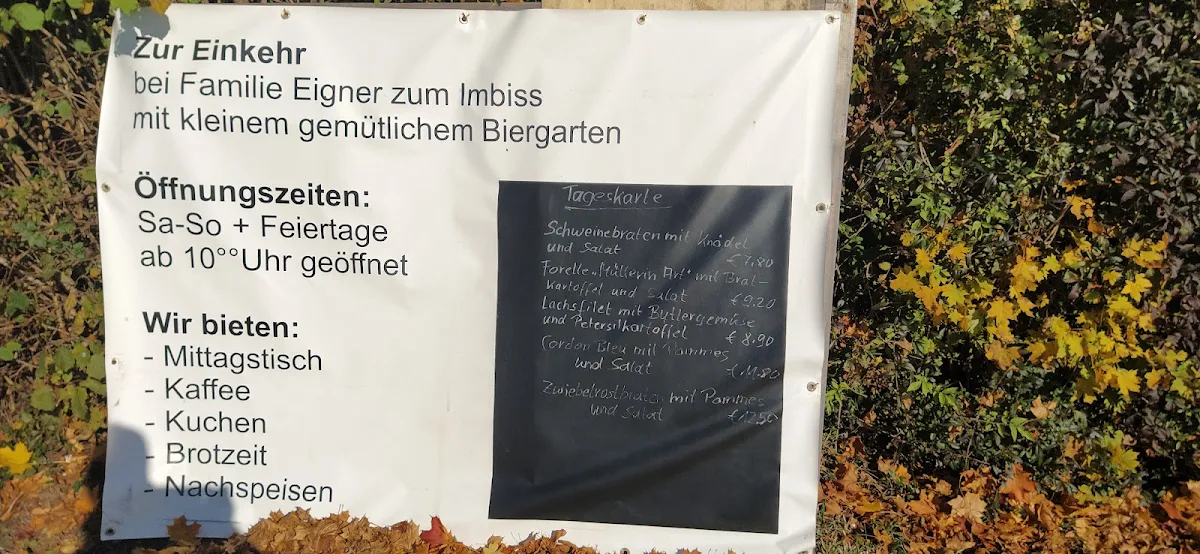 Zur Einkehr
bei Familie Eigner zum Imbiss
mit kleinem gemütlichem Biergarten
Öffnungszeiten:
Sa-So + Feiertage
ab 10°°Uhr geöffnet
Wir bieten:
- Mittagstisch
- Kaffee
- Kuchen
- Brotzeit
- Nachspeisen
Tageskarte
Schweinebraten mit Knödel
und Salat € 7.80
Forelle „Müllerin Art" mit Brat-
kartoffel und Salat € 9.20
Lachsfilet mit Buttergemüse
und Petersilkartoffel € 8.90
Cordon Bleu mit Pommes
und Salat € 11.80
Zwiebelrostbraten mit Pommes
und Salat € 12.50